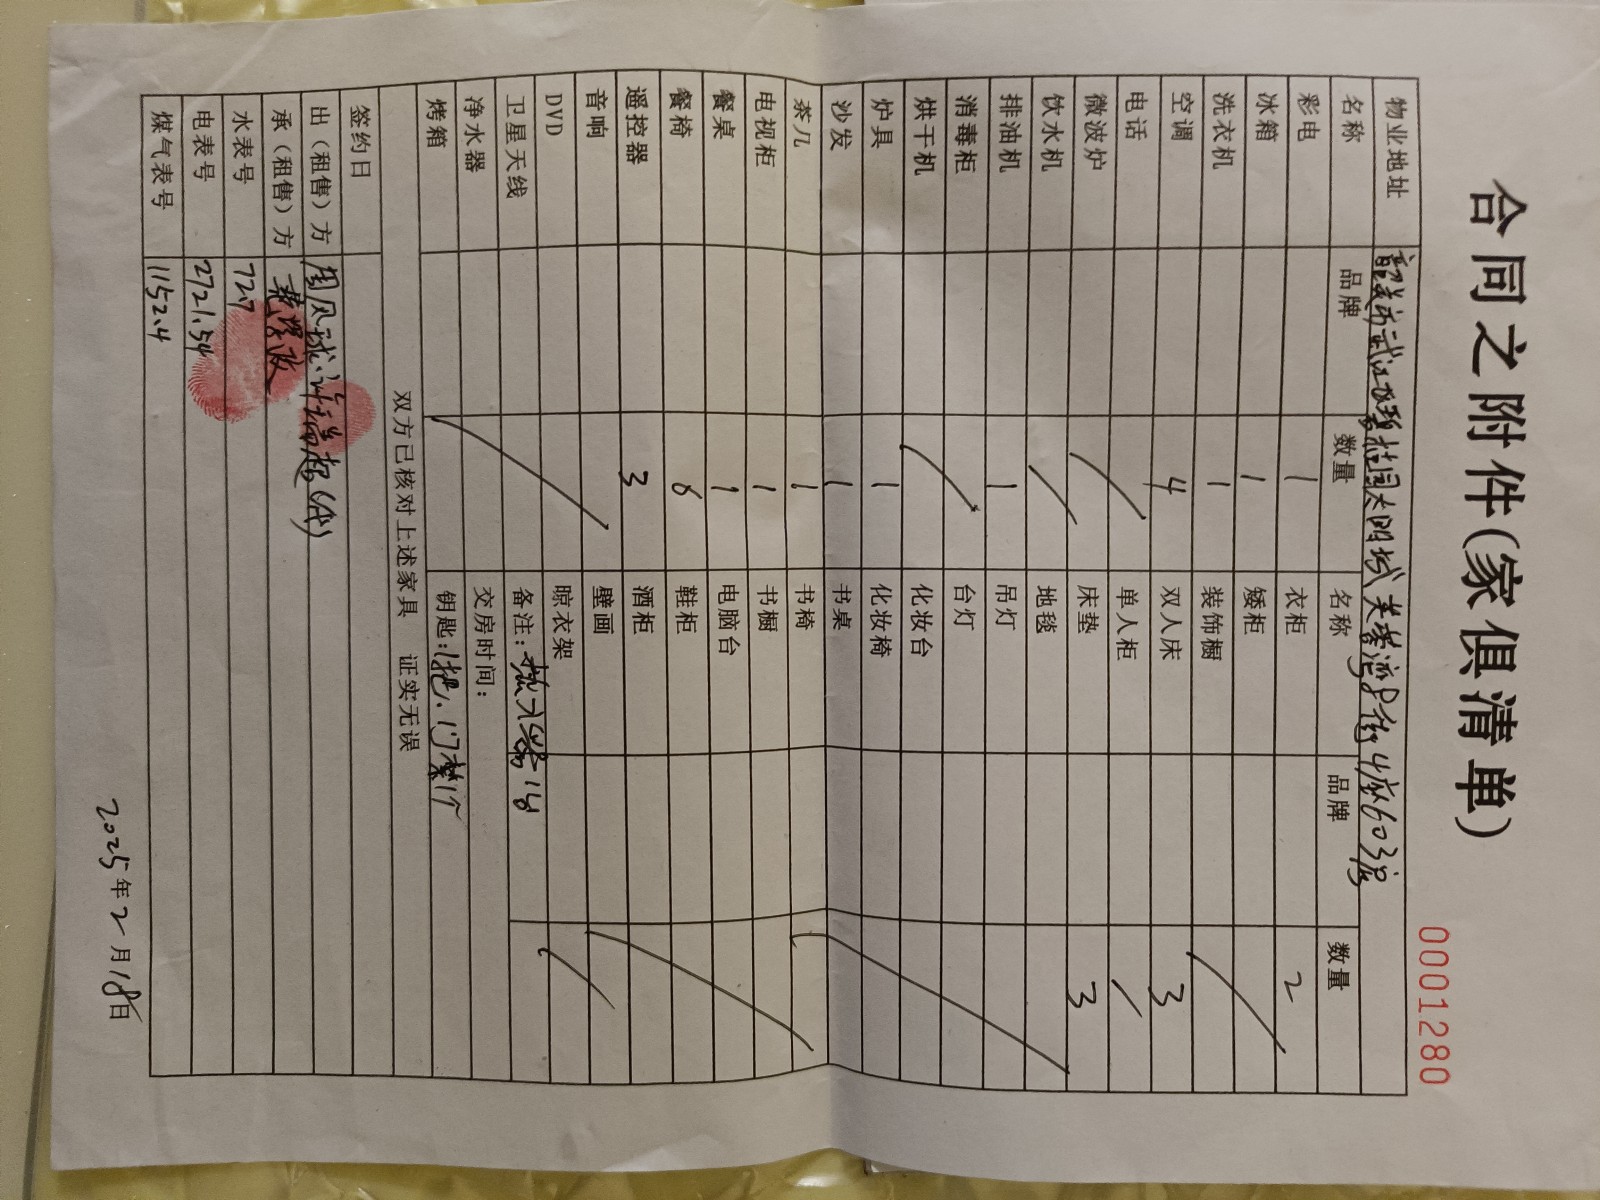 合同之附件(家俱清单)
0001280
物业地址 韶关市武江区碧桂园太阳城芙蓉湾8街4座603房
名称 品牌 数量 名称 品牌 数量
彩电 1 衣柜 2
冰箱 1 矮柜
洗衣机 1 装饰橱
空调 4 双人床 3
电话 单人柜
微波炉 床垫 3
饮水机 地毯
排油机 1 吊灯
消毒柜 台灯
烘干机 化妆台
炉具 1 化妆椅
沙发 1 书桌
茶几 1 书椅
电视柜 1 书橱
餐桌 1 电脑台
餐椅 6 鞋柜
遥控器 3 酒柜
音响 壁画
DVD 晾衣架
卫星天线 备注:热水器1台
净水器 交房时间:
烤箱 钥匙:1把、门禁1个
双方已核对上述家具 证实无误
签约日
出(租售)方 周风球、(代)
承(租售)方
水表号 727
电表号 2721.54
煤气表号 1152.4
2025年2月18日